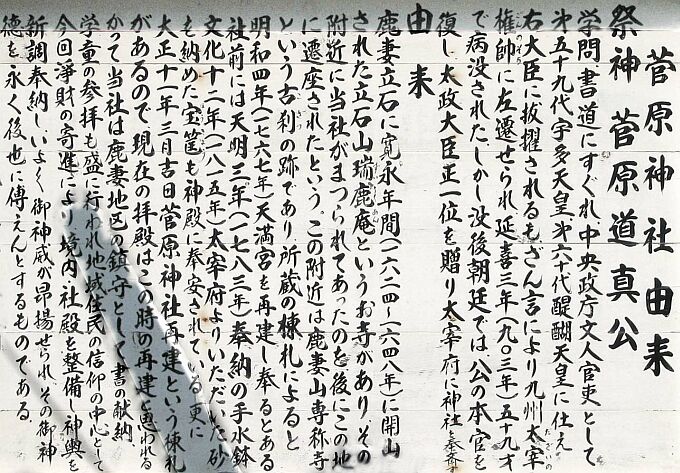 菅原神社由来
祭神 菅原道真公
学問書道にすぐれ中央政庁文人官吏として
才五十九代宇多天皇才六十代醍醐天皇に仕え
右大臣に抜擢されるもざん言により九州太宰
権帥に左遷せられ延喜三年(九〇三年)五十九才
で病没されたしかし没後朝廷では公の本官を
復し太政大臣正一位を贈り太宰府に神社
由来
鹿妻立石に寛永年間(一六二四〜一六四八年)に開山
された立石山瑞鹿庵というお寺がありその
附近に当社がまつられてあったのを後にこの地
に遷座されたという この附近は鹿妻山専称寺
という古刹の跡であり所蔵の棟札によると
明和四年(一七六七年)天満宮を再建し奉るとある
社前には天明三年(一七八三年)奉納の手水鉢
文化十二年(一八一五年)太宰府よりいただいた砂
も納めた宝筐も神殿に奉安されている 更に
大正十一年三月吉日菅原神社再建という棟札
があるので現在の拝殿はこの時の再建と思われる
かって当社は鹿妻地区の鎮守として 書の献納
学童の参拝も盛に行われ地域住民の信仰の中心として
今回浄財の寄進により境内社殿を整備し神輿を
新調奉納しいよく御神威が昂揚せられその御神
徳を永く後世に傳えんとするものである